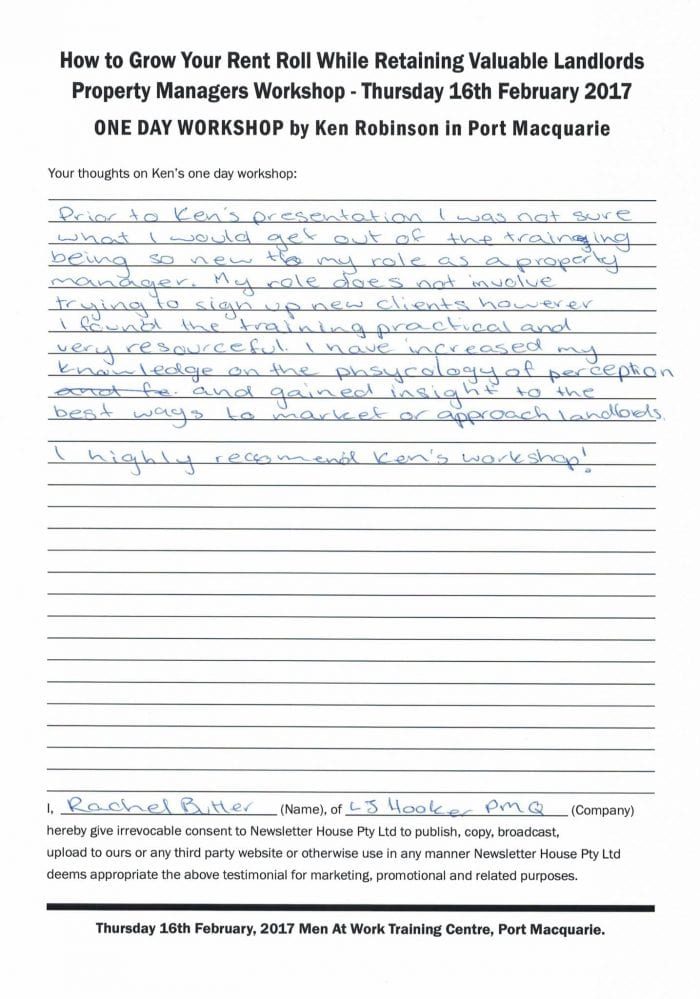 How to Grow Your Rent Roll While Retaining Valuable Landlords
Property Managers Workshop - Thursday 16th February 2017
ONE DAY WORKSHOP by Ken Robinson in Port Macquarie
Your thoughts on Ken's one day workshop:
Prior to Ken's presentation I was not sure
what I would get out of the training
being so new to my role as a property
manager. My role does not involve
trying to sign up new clients however
I found the training practical and
very resourceful. I have increased my
knowledge on the phsycology of perception
and gained insight to the
best ways to market or approach landlords.
I highly reccomend Ken's workshop!
I, Rachel Butler (Name), of LJ Hooker PMQ (Company)
hereby give irrevocable consent to Newsletter House Pty Ltd to publish, copy, broadcast,
upload to ours or any third party website or otherwise use in any manner Newsletter House Pty Ltd
deems appropriate the above testimonial for marketing, promotional and related purposes.
Thursday 16th February, 2017 Men At Work Training Centre, Port Macquarie.